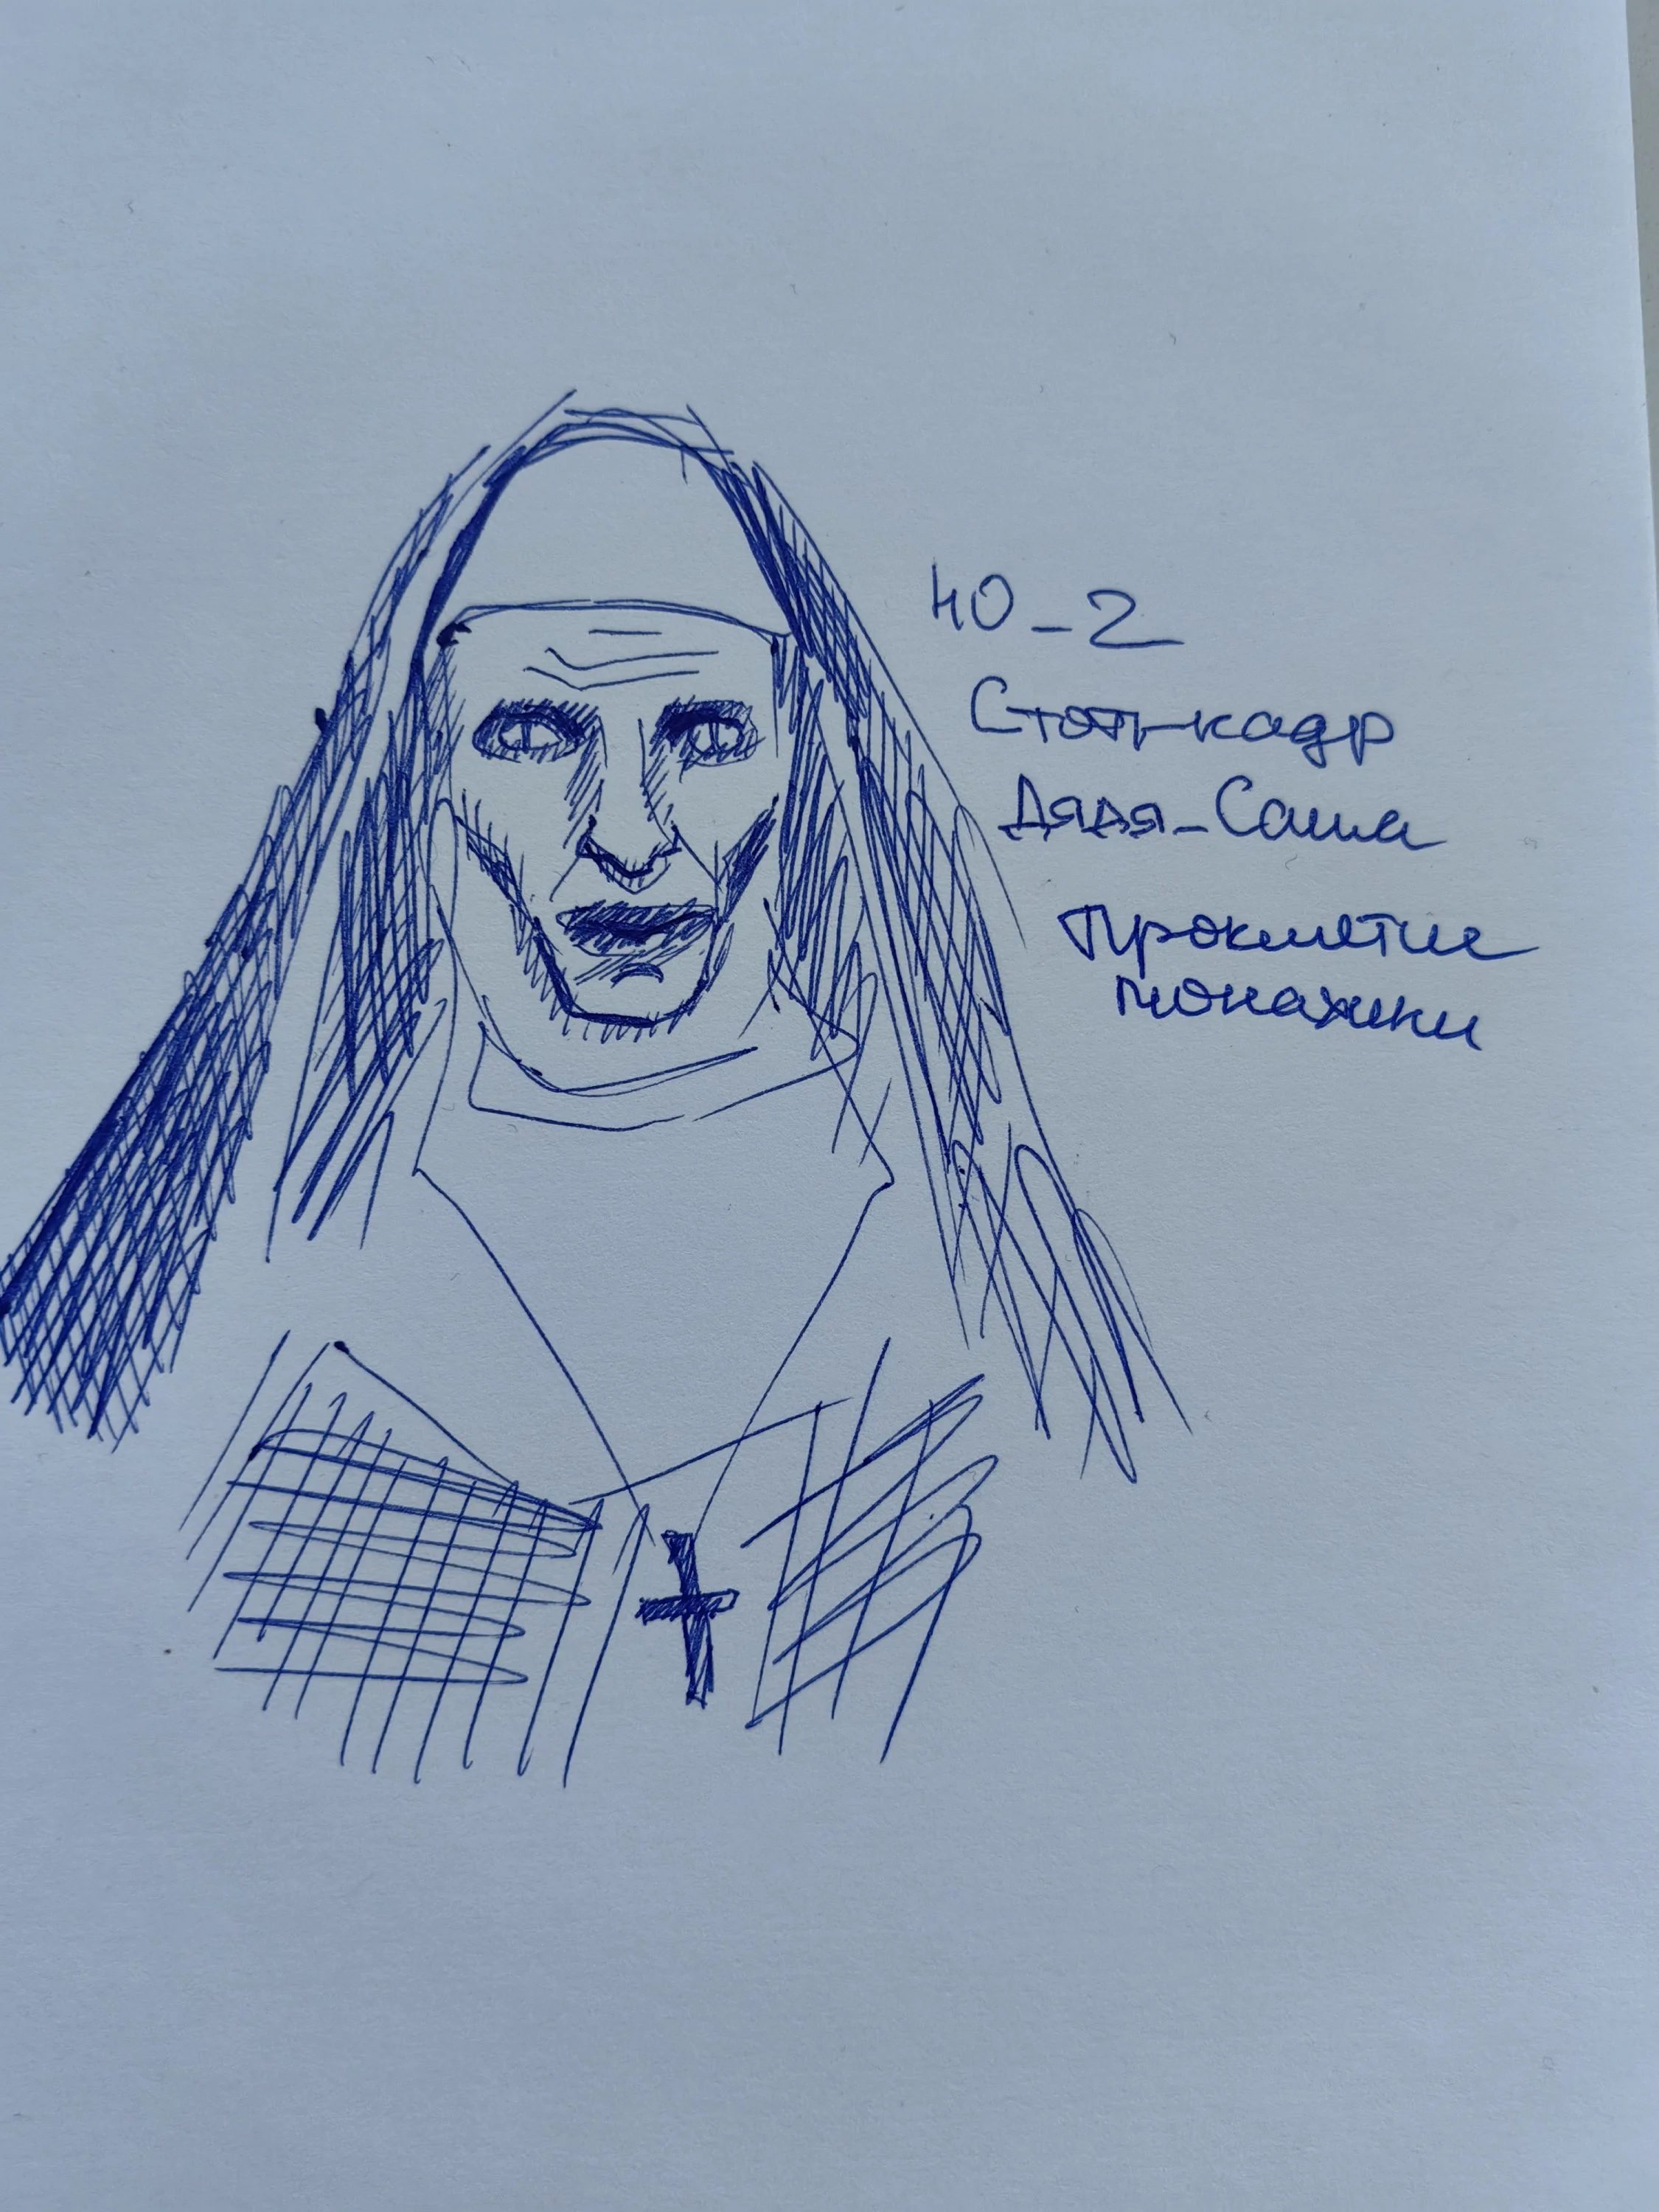 40_2
Стоп-кадр
Дядя_Саша
Проклятие
монахини